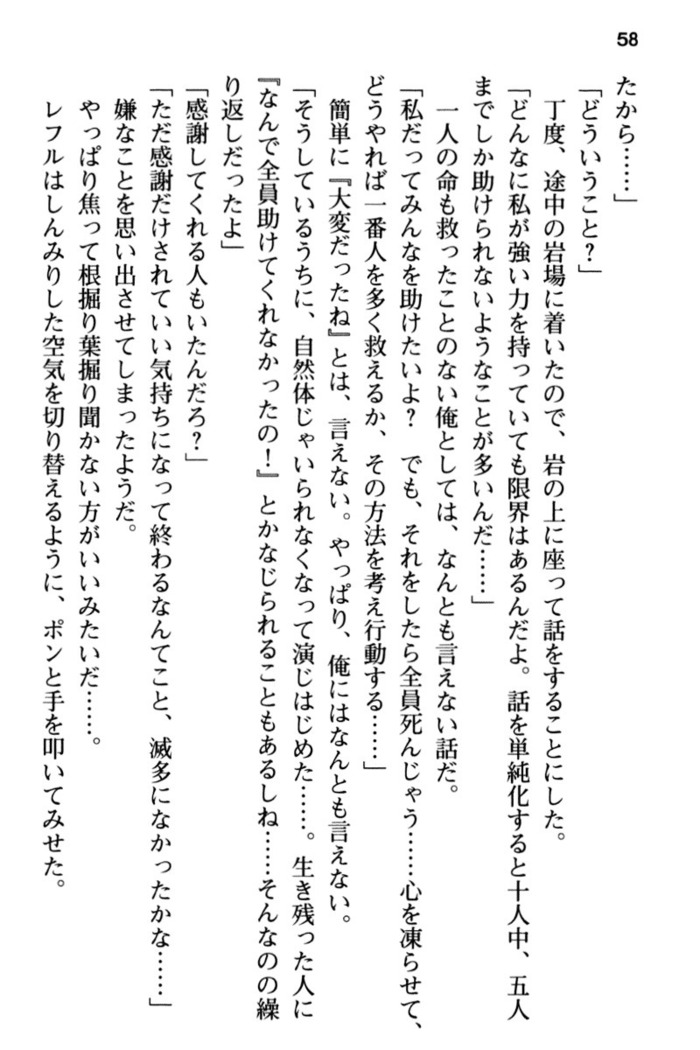 58
たから……」
「どういうこと？」
　丁度、途中の岩場に着いたので、岩の上に座って話をすることにした。
「どんなに私が強い力を持っていても限界はあるんだよ。話を単純化すると十人中、五人
までしか助けられないようなことが多いんだ……」
　一人の命も救ったことのない俺としては、なんとも言えない話だ。
「私だってみんなを助けたいよ？　でも、それをしたら全員死んじゃう……心を凍らせて、
どうやれば一番人を多く救えるか、その方法を考え行動する……」
　簡単に『大変だったね』とは、言えない。やっぱり、俺にはなんとも言えない。
「そうしているうちに、自然体じゃいられなくなって演じはじめた……。生き残った人に
『なんで全員助けてくれなかったの！』とかなじられることもあるしね……そんなのの繰
り返しだったよ」
「感謝してくれる人もいたんだろ？」
「ただ感謝だけされていい気持ちになって終わるなんてこと、滅多になかったかな……」
　嫌なことを思い出させてしまったようだ。
　やっぱり焦って根掘り葉掘り聞かない方がいいみたいだ……。
　レフルはしんみりした空気を切り替えるように、ポンと手を叩いてみせた。